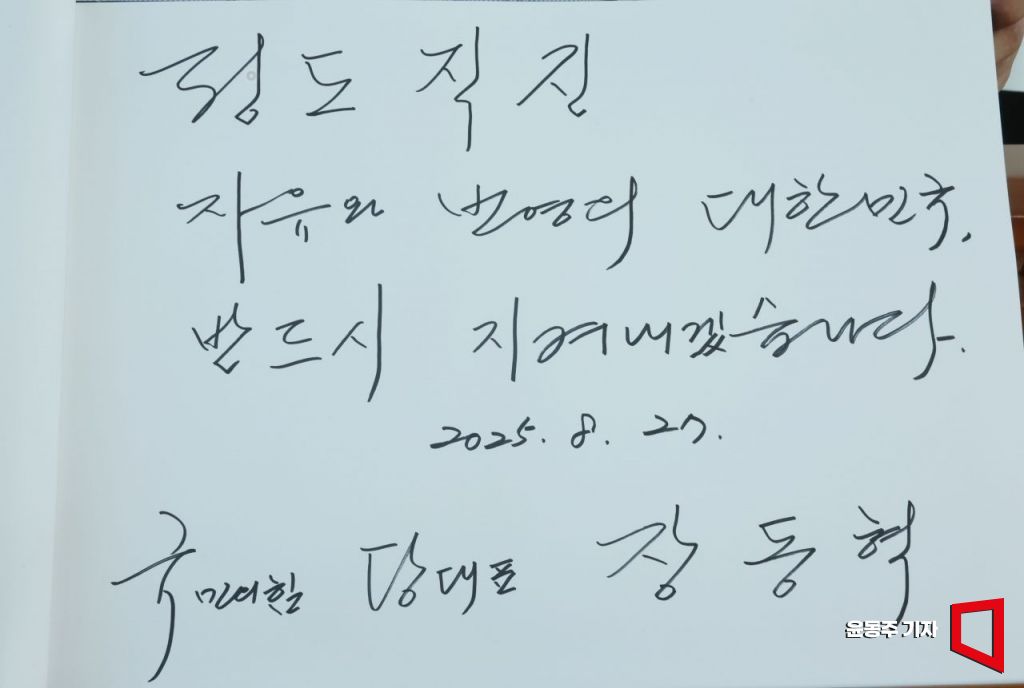 정도직진
자유와 번영의 대한민국,
반드시 지켜내겠습니다.
2025. 8. 27.
국민의힘 당대표 장동혁
윤동주 기자